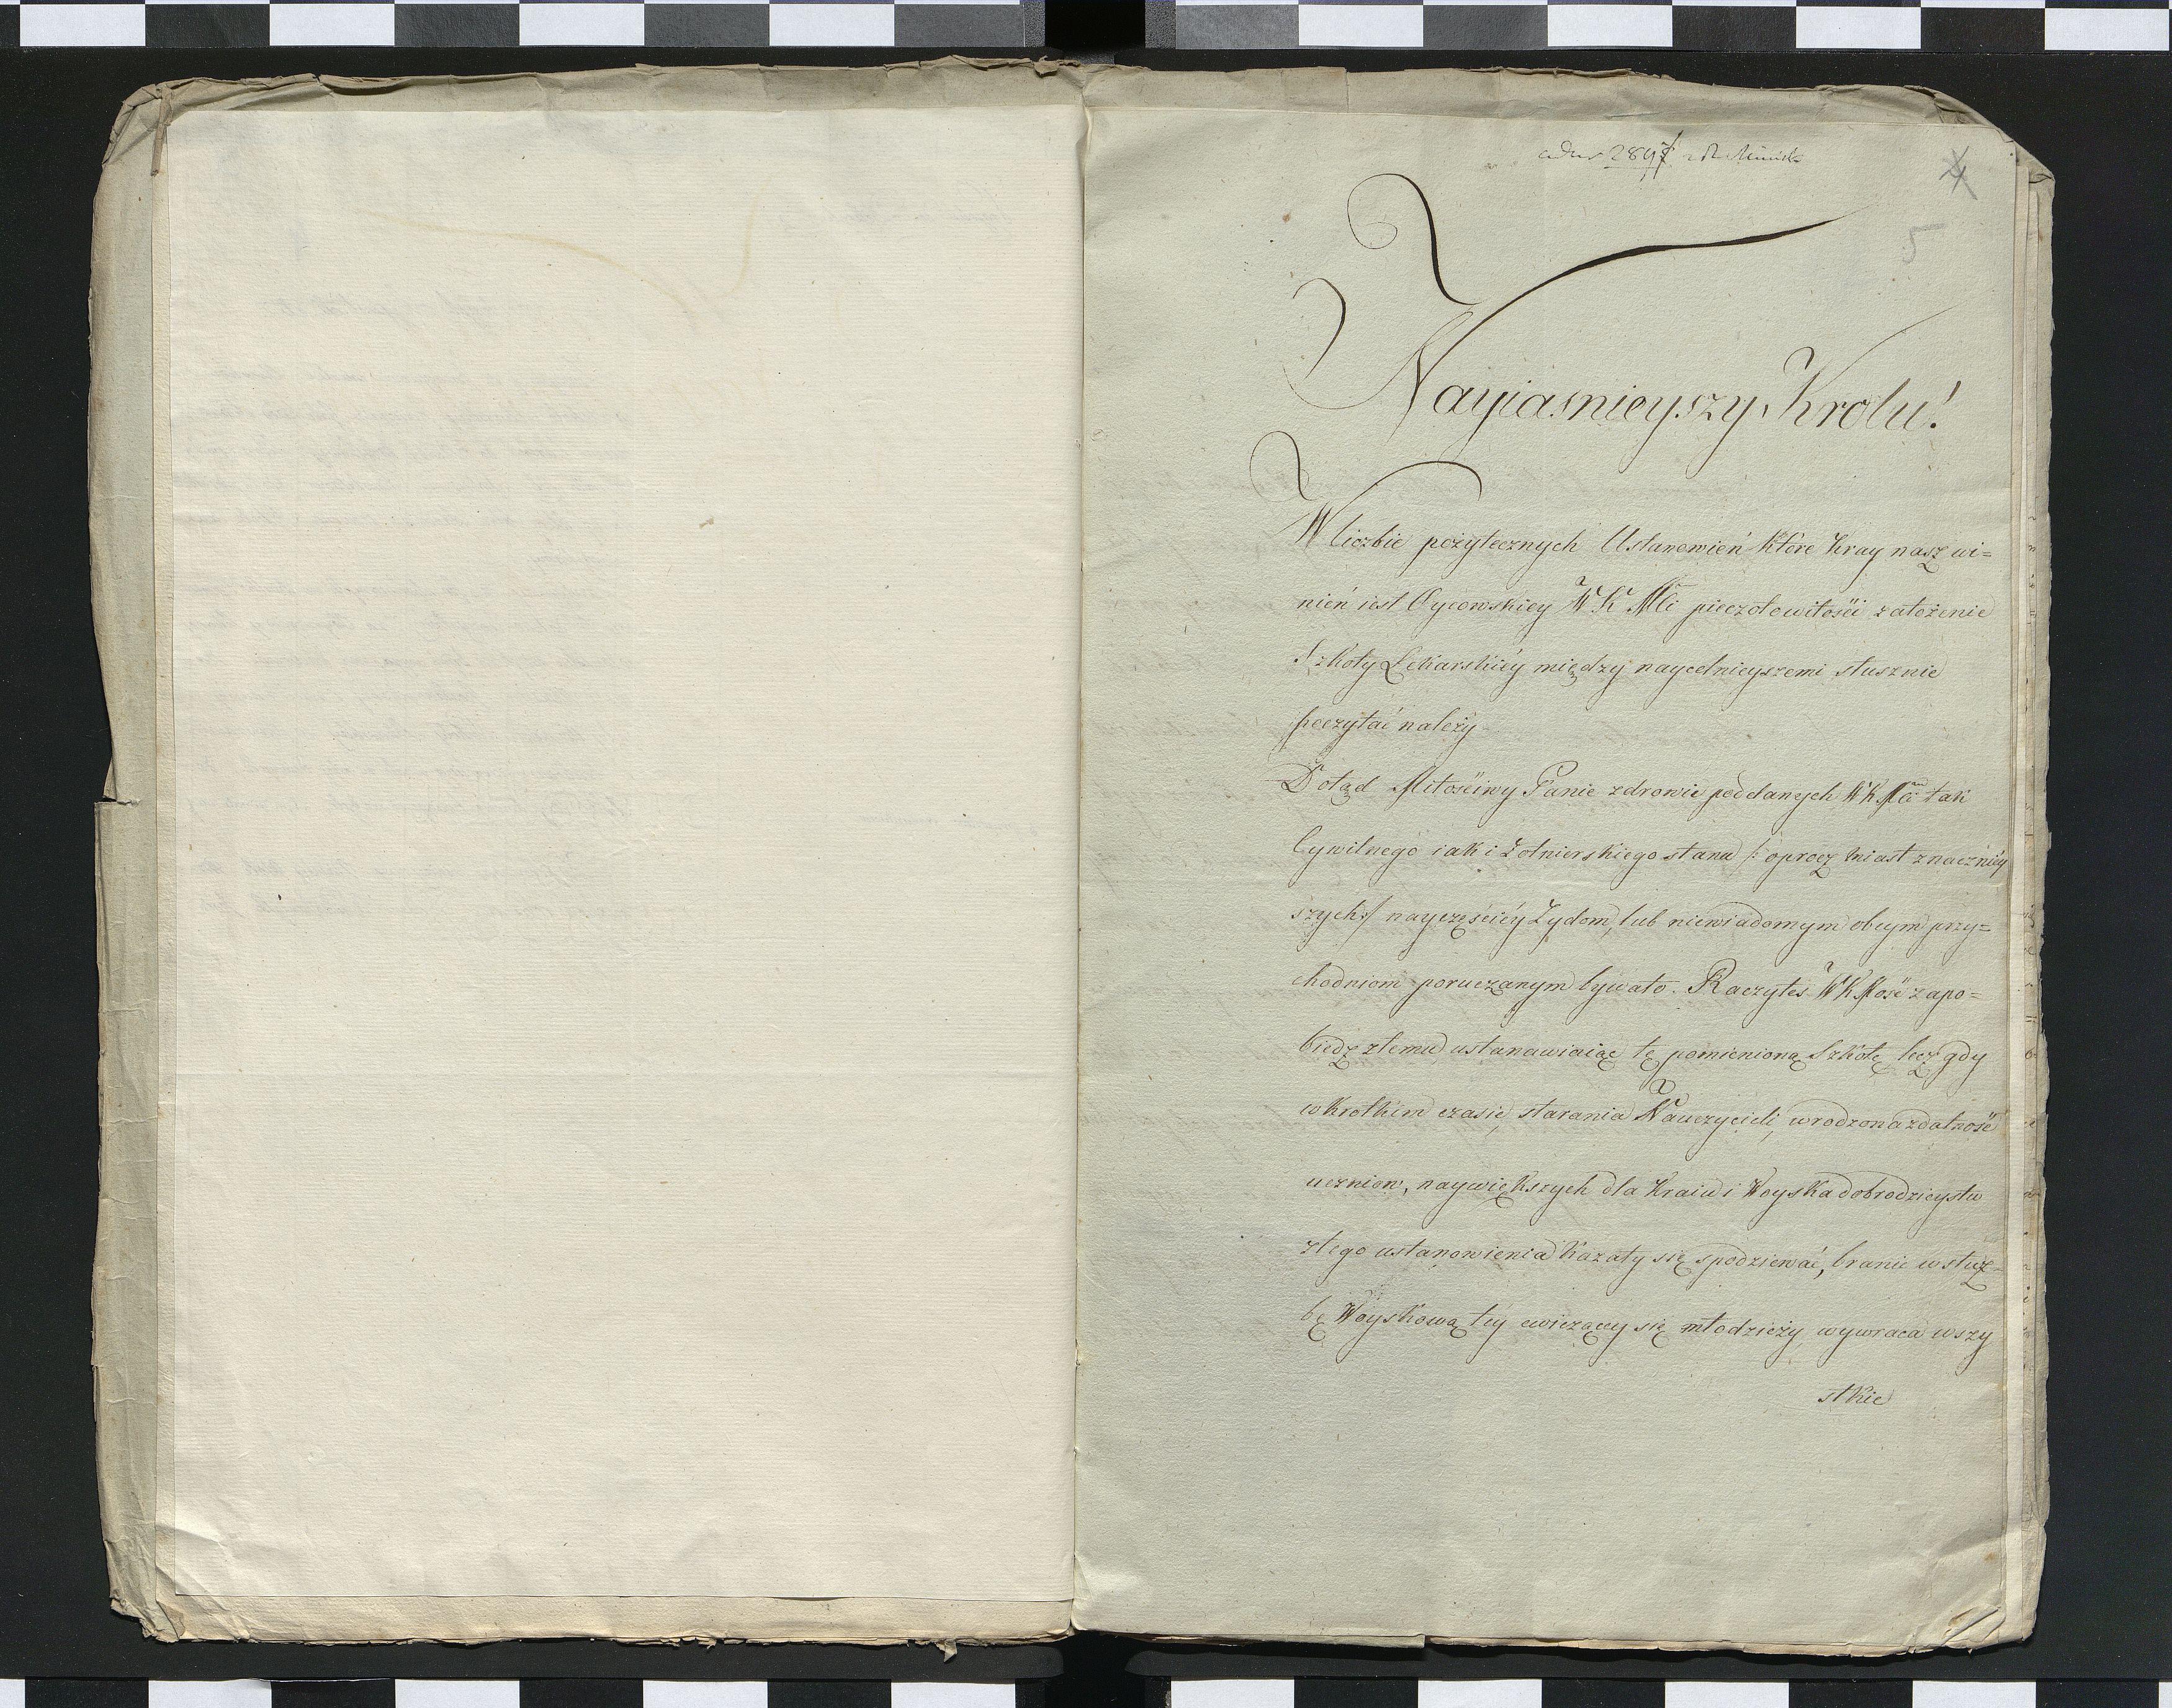 4
5
Nayiasnieyszy Krolu!
W liczbie pożytecznych Ustanowień które Kray nasz wi=
nień iest Oycowskiey WKMci pieczołowitości założenie
Szkoły Lekarskiéy między naycelnieyszemi słusznie
poczytać należy
Dotąd Miłościwy Panie zdrowie poddanych WKMci tak
Cywilnego iak i Zołnierskiego stanu /: oprocz miast znacznéy
szych :/ nayczęściéy Zydom, lub niewiadomym obcym przy=
chodniom poruczanym bywało. Raczyłeś WKMość zapo=
biedz złemu ustanawiaiąc tę pomienioną Szkołę, lecz gdy
w krotkim czasie, starania Nauczycieli, wrodzona zdatność
uczniow, naywiększych dla Kraiu i Woyska dobrodzieystw
z tego ustanowienia kazały się spodziewać, branie w służ=
bę Woyskową téy cwiczącey się młodzieży wywraca wszy
stkie